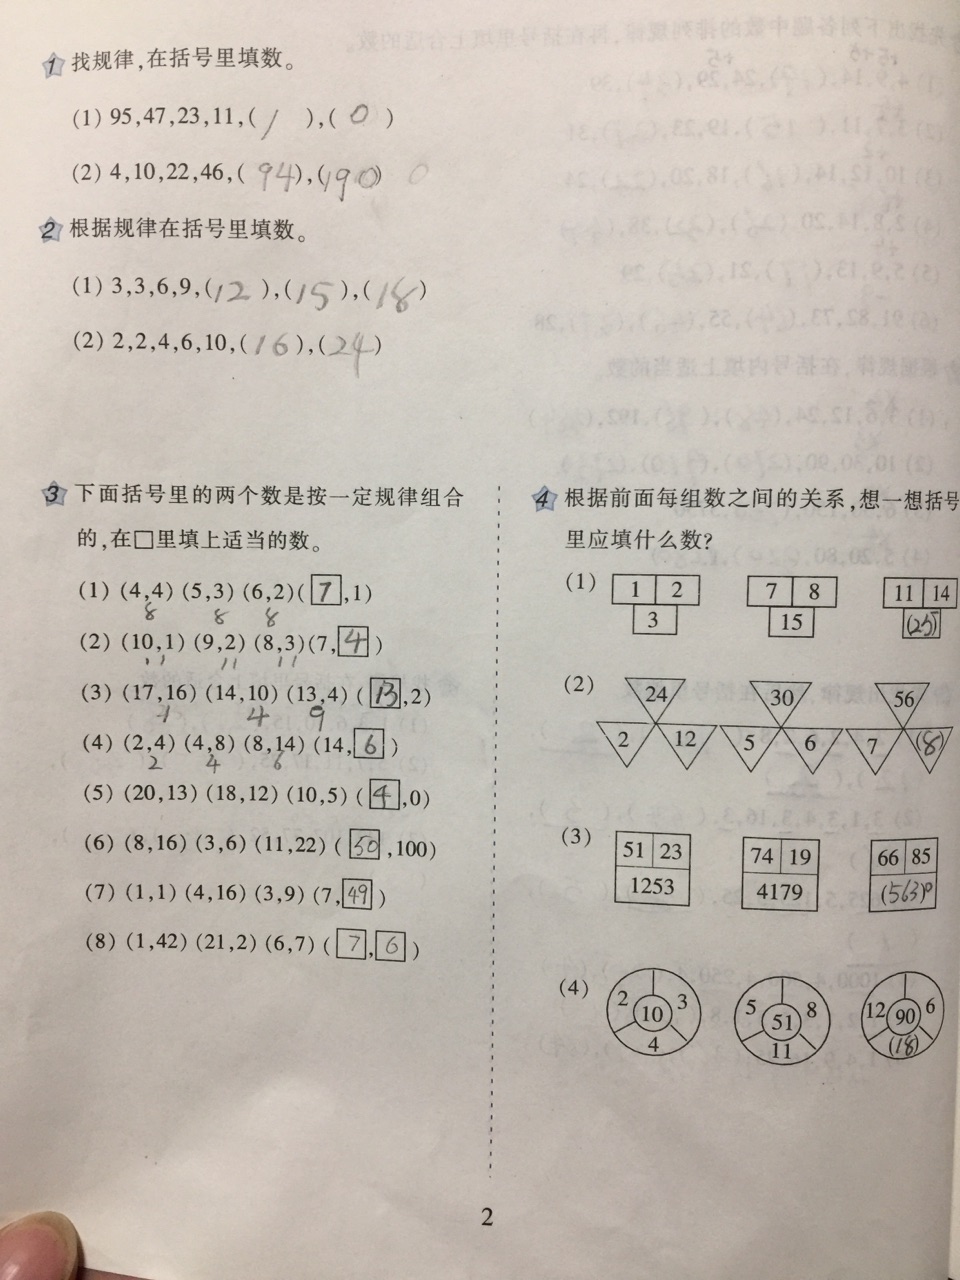 1 找规律,在括号里填数。
(1) 95,47,23,11,( / ),( 0 )
(2) 4,10,22,46,( 94),(190)
2 根据规律在括号里填数。
(1) 3,3,6,9,(12 ),(15 ),(18)
(2) 2,2,4,6,10,(16 ),(24)
3 下面括号里的两个数是按一定规律组合
的,在□里填上适当的数。
(1) (4,4) (5,3) (6,2) ( 7 ,1)
8 8 8
(2) (10,1) (9,2) (8,3) (7, 4 )
11 11 11
(3) (17,16) (14,10) (13,4) ( 13 ,2)
1 4 9
(4) (2,4) (4,8) (8,14) (14, 6 )
2 4 6
(5) (20,13) (18,12) (10,5) ( 4 ,0)
(6) (8,16) (3,6) (11,22) ( 50 ,100)
(7) (1,1) (4,16) (3,9) (7, 49 )
(8) (1,42) (21,2) (6,7) ( 7 , 6 )
4 根据前面每组数之间的关系,想一想括号
里应填什么数?
(1) 1 2 7 8 11 14
3 15 (25)
(2) 24 30 56
2 12 5 6 7 (8)
(3) 51 23 74 19 66 85
1253 4179 (5630)
(4) 2 3 5 8 12 6
10 51 90
4 11 (18)
2